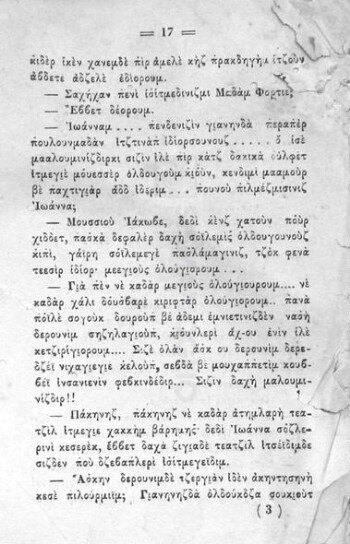 = 17 =
κιδὲρ ἰκὲν χανεμδὲ πὶρ ἀμελὲ κὴζ πρακδηγὴμ ἰτζοῦν
ἀβδετὲ ἀδζελὲ ἐδιορουμ.
— Σαχήχαν πενὶ ἰσίτμεδινιζμι Μαδὰμ Φορτιέ;
— Ἔββετ δέορουμ.
— Ἰωάνναμ .... πενδενιζὶν γιανηνδὰ περαπὲρ
πουλουνμαδὰν ἰτζτινὰπ ἰδιορσουνουζ .. . ὅ ἰσὲ
μααλουμινίζδιρκι σιζὶν ἰλὲ πὶρ κὰτζ δακικὰ οὐλφὲτ
ἰτμεγιὲ μουεσσὲρ ὀλδουγοὺμ κιοὺν, κενδιμὶ μααμοὺρ
βὲ παχτιγιὰρ ἀδδ ἰδερὶμ ... πουνοὺ πιλμέζμισινιζ
Ἰωάννα;
— Μουσσιοῦ Ἰάκωβε, δεδὶ κὲνζ χατοὺν ποὺρ
χιδδὲτ, πασκὰ δεφαλὲρ δαχὴ σοϊλεμὶς ὀλδουγουνοὺζ
κιπὶ, γάϊρη σοϊλεμεγὲ πασλάμαγινιζ, τζὸκ φενὰ
τεεσὶρ ἰδίορ· μεεγιοὺς ὀλούγιορουμ ...
— Γιὰ πὲν νὲ καδὰρ μεγιοὺς ὀλούγιουρουμ.... νὲ
καδὰρ χάλι δουσβαρὲ κιριφτὰρ ὀλούγιορουμ.. πανὰ
ποϊλὲ σογοὺκ δουροὺπ βὲ ἀδεμὶ ἐμνιετινιζδὲν νασὴ
δερουνὶμ σηζηλαγιοὺπ, κιουνλερὶ ἄχ-ου ἐνὶν ἰλὲ
κετζιρίγιορουμ.... Σιζὲ ὀλὰν ἀσκ ου δερουνὶμ δερε-
δζεῒ νιχαγιεγιὲ κελοὺπ, σεβδὰ βὲ μουχαππετὶμ κουβ-
βεῒ ἰνσανιενὶν φεβκινδέδιρ... Σιζὶν δαχὴ μαλουμι-
νίζδιρ!!
— Πάκηνηζ, πάκηνηζ νὲ καδὰρ ἀτημλαρὴ τεα-
τζὶλ ἰτμεγιὲ χακκὴμ βάρημης· δεδὶ Ἰωάννα σόζλε-
ρινὶ κεσερὲκ, ἔββετ δαχὰ ζιγιαδὲ τεατζὶλ ἰτσέϊδιμδε
σιζδεν ποὺ δζεβαπλερὶ ἰσίτμεγεϊδιμ.
— Ἄσκην δερουνιμδὲ τζεργιὰν ἰδὲν ἀκηντησηνὴ
κεσὲ πιλούρμιϊμ; Γιανηνηζδὰ ὀλδούκδζα σουκιοὺτ
( 3 )